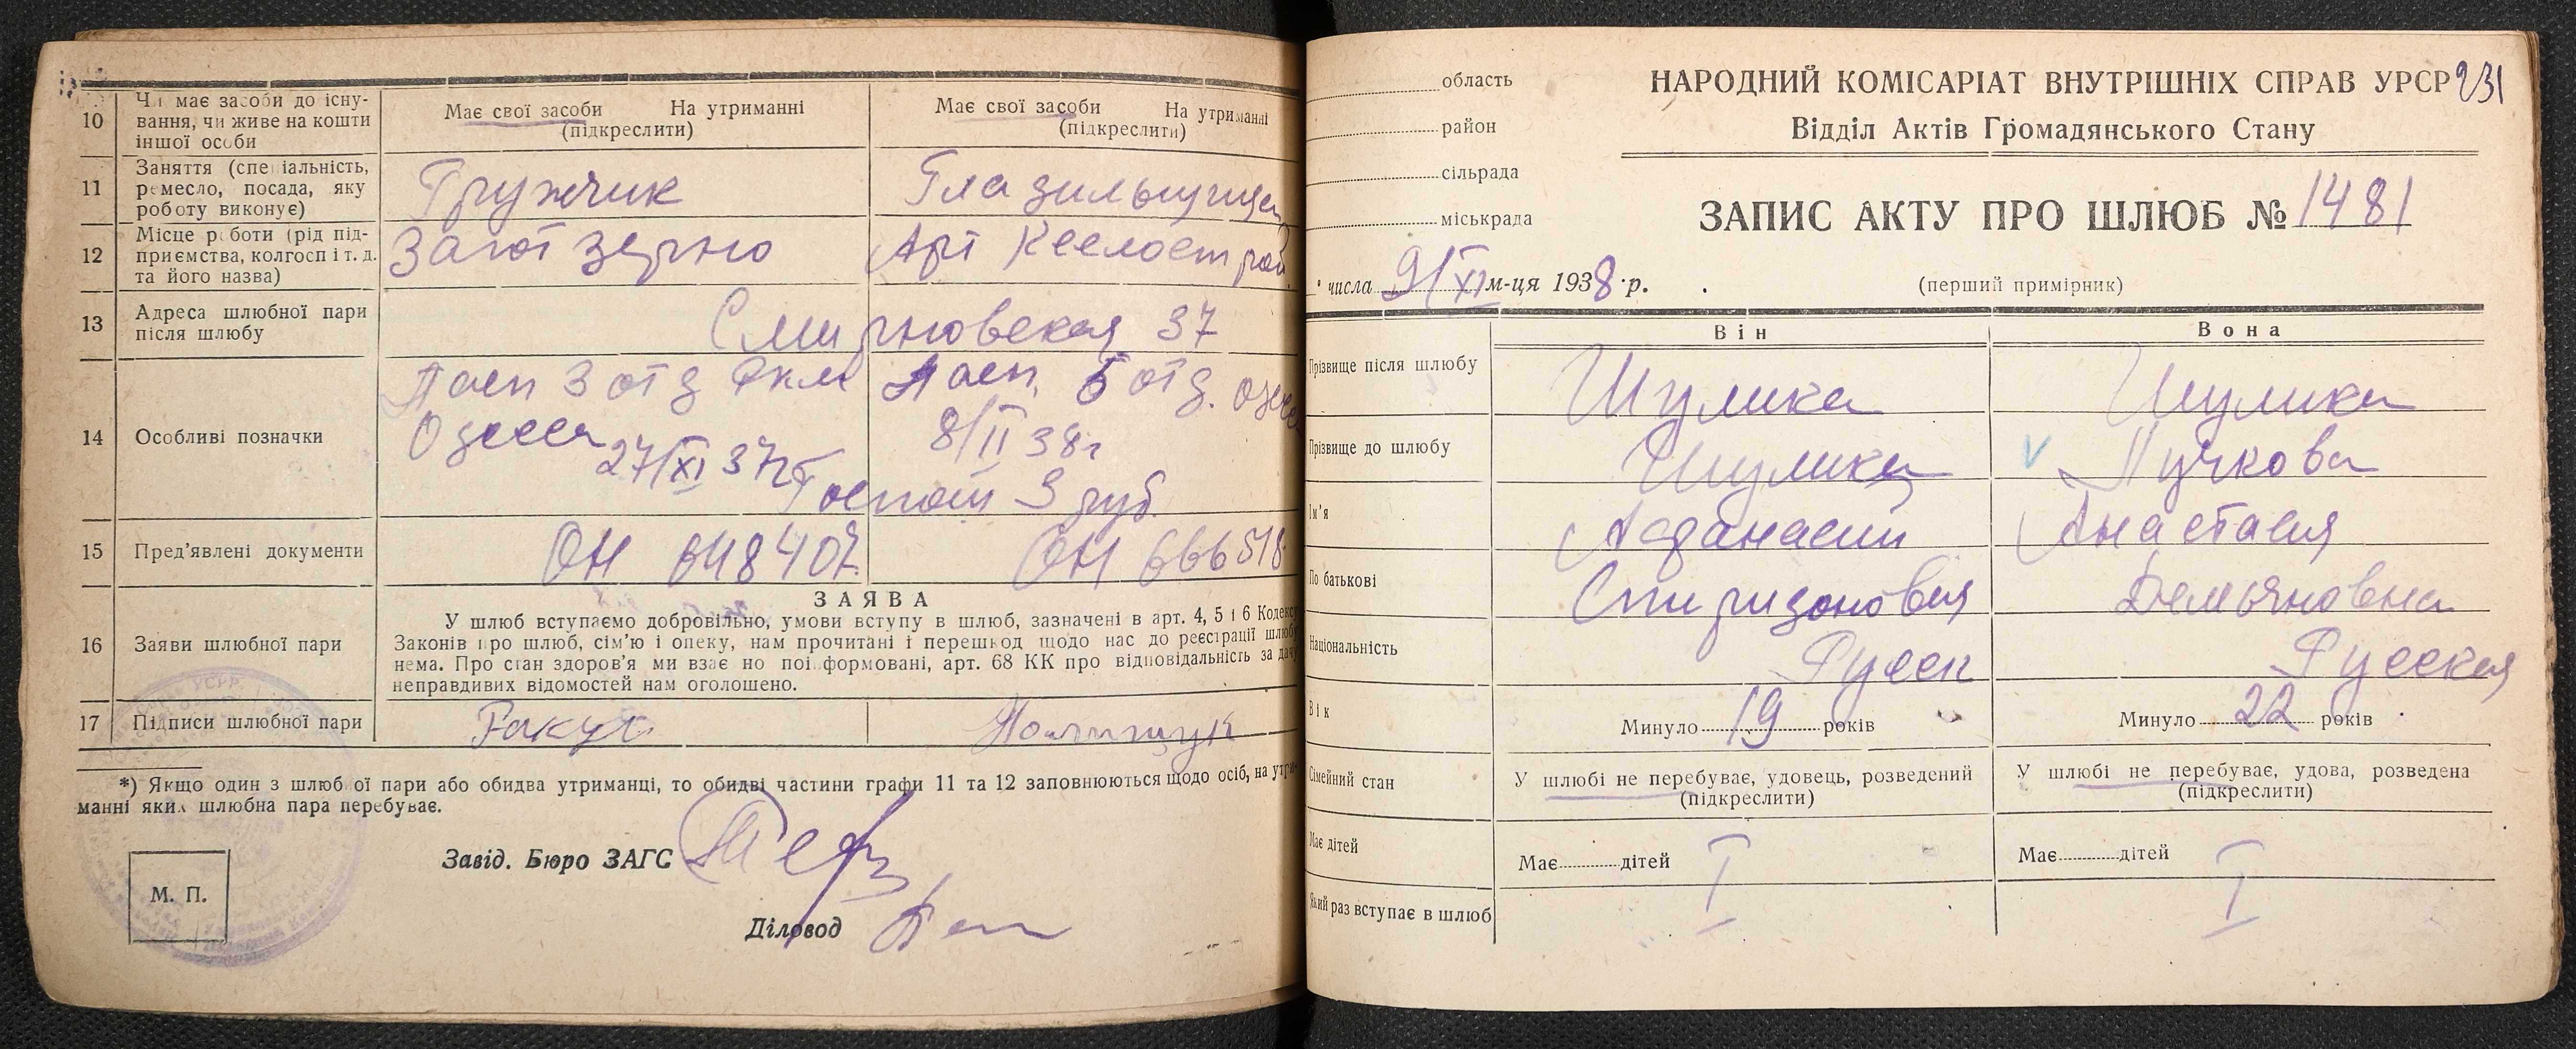 10 Чи має засоби до існування, чи живе на кошти іншої особи
Має свої засоби На утриманні
(підкреслити)
Має свої засоби На утриманні
(підкреслити)
11 Заняття (спеціальність, ремесло, посада, яку роботу виконує)
Грузчик
12 Місце роботи (рід підприємства, колгосп і т. д. та його назва)
Загот зерно
Арт
13 Адреса шлюбної пари після шлюбу
Смирновская 37
14 Особливі позначки
Пасп 3 отд
Одесса 27/XI 37г
Пасп. 5 отд.
8/II 38г
Госпош 3 руб.
15 Пред'явлені документи
ОН 648407
ОН 666518
16 Заяви шлюбної пари
ЗАЯВА
У шлюб вступаємо добровільно, умови вступу в шлюб, зазначені в арт. 4, 5 і 6 Кодексу
Законів про шлюб, сім'ю і опеку, нам прочитані і перешкод щодо нас до реєстрації шлюбу
нема. Про стан здоров'я ми взаємно поінформовані, арт. 68 КК про відповідальність за дачу
неправдивих відомостей нам оголошено.
17 Підписи шлюбної пари
Ракул
Полищук
*) Якщо один з шлюбної пари або обидва утриманці, то обидві частини графи 11 та 12 заповнюються щодо осіб, на утри-
манні яких шлюбна пара перебуває.
Завід. Бюро ЗАГС
М. П.
Діловод
область
район
сільрада
міськрада
НАРОДНИЙ КОМІСАРІАТ ВНУТРІШНІХ СПРАВ УРСР
231
Відділ Актів Громадянського Стану
ЗАПИС АКТУ ПРО ШЛЮБ № 1481
числа 9/XI м-ця 1938 р.
(перший примірник)
Він
Вона
Прізвище після шлюбу
Шулика
Шулика
Прізвище до шлюбу
Шулика
Пучкова
Ім'я
Афанасий
Анастасия
По батькові
Спиридонович
Демьяновна
Національність
Русск
Русская
Вік
Минуло 19 років
Минуло 22 років
Сімейний стан
У шлюбі не перебуває, удовець, розведений
(підкреслити)
У шлюбі не перебуває, удова, розведена
(підкреслити)
Має дітей
Має дітей
Має дітей
Який раз вступає в шлюб
I
I